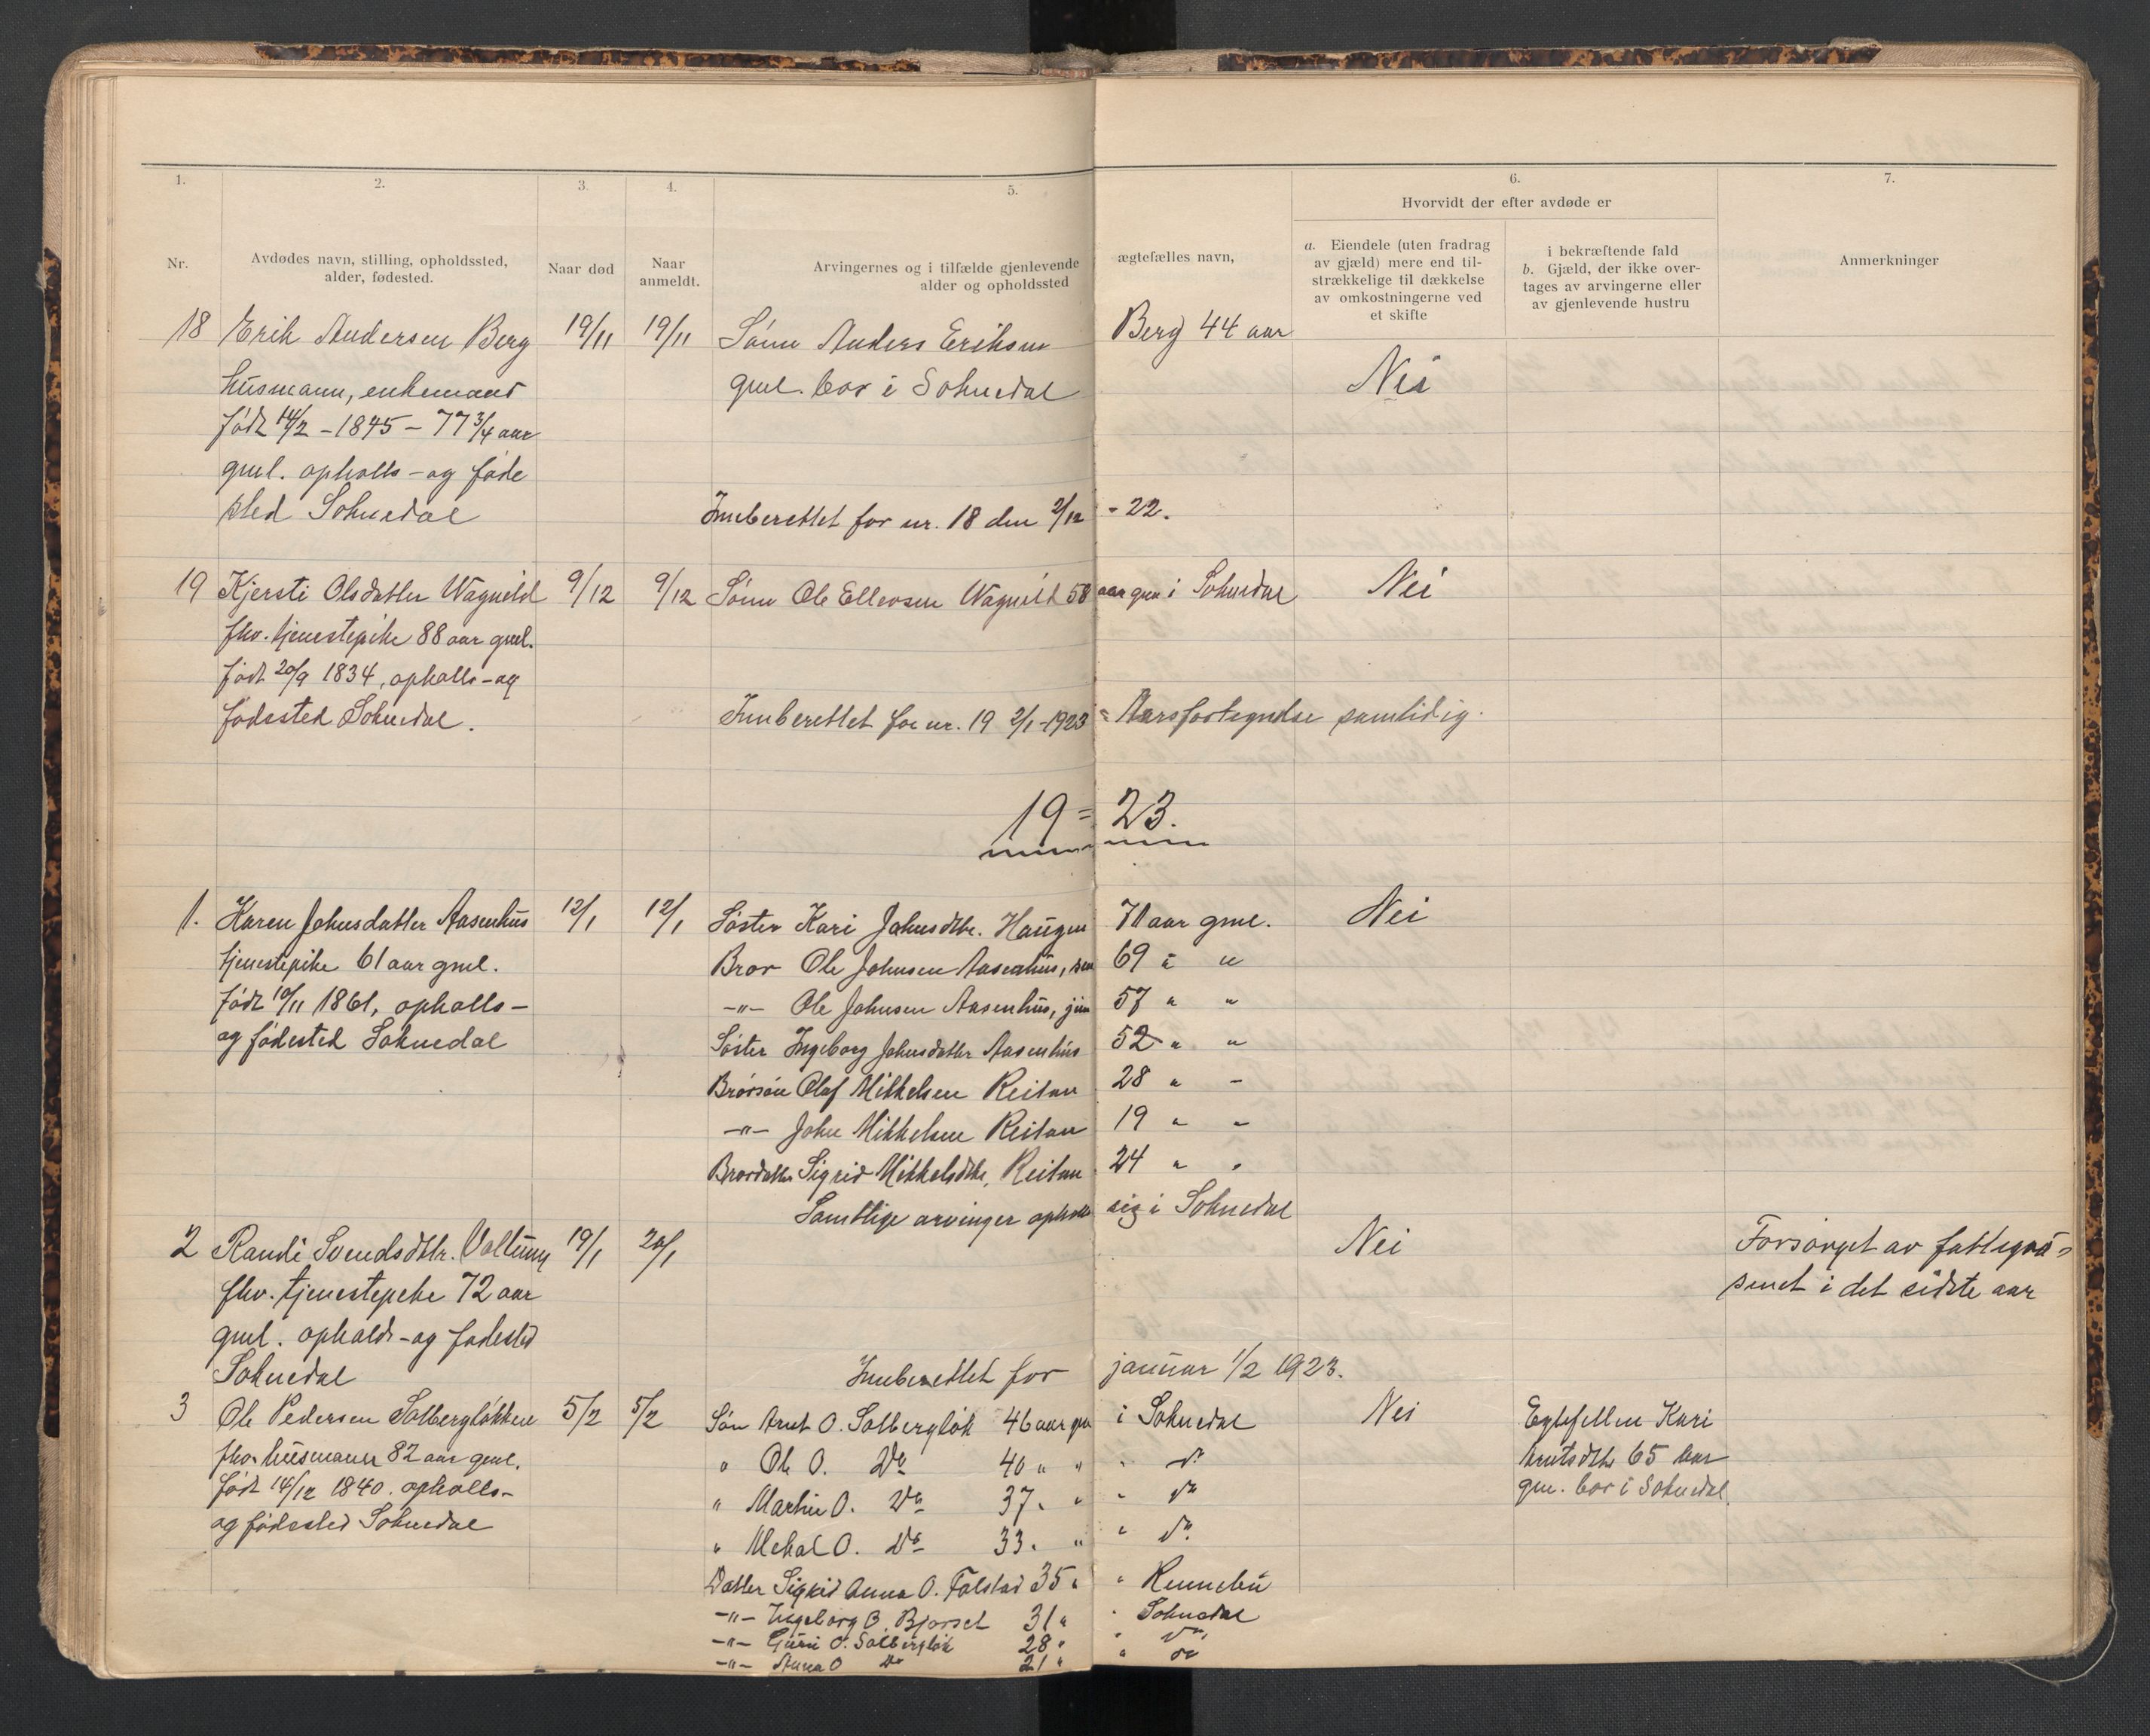 1. 2. 3. 4. 5. 6. 7.
Hvorvidt der efter avdøde er
Nr.
Avdødes navn, stilling, opholdssted,
alder, fødested.
Naar død
Naar
anmeldt.
Arvingernes og i tilfælde gjenlevende ægtefælles navn,
alder og opholdssted
a. Eiendele (uten fradrag
av gjæld) mere end til-
strækkelige til dækkelse
av omkostningerne ved
et skifte
i bekræftende fald
b. Gjæld, der ikke over-
tages av arvingerne eller
av gjenlevende hustru
Anmerkninger
18 Erik Andersen Berg 19/11 19/11 Sønn Anders Eriksen Berg 44 aar
husmann, enkemand gml. bor i Soknedal Nei
født 14/2 - 1845 - 77 3/4 aar
gml. opholls - og føde
sted Soknedal
Innberettet for nr. 18 den 2/12 - 22.
19 Kjersti Olsdatter Wagnild 9/12 9/12 Sønn Ole Ellevsen Wagnild 58 aar gml i Soknedal Nei
fhv. tjenestepike 88 aar gml.
født 20/9 1834, opholls - og
fødested Soknedal.
Innberettet for nr. 19 2/1 - 1923 = Aarsfortegnelse samtidig.
19 = 23.
1. Karen Johnsdatter Aasenhus 12/1 12/1 Søster Kari Johnsdtr. Haugen 71 aar gml. Nei
tjenestepike 61 aar gml. Bror Ole Johnsen Aasenhus, sen 69 " "
født 10/11 1861, opholls - -"- Ole Johnsen Aasenhus, jun 57 " "
og fødested Soknedal Søster Ingeborg Johnsdatter Aasenhus 52 " "
Brorsøn Olaf Mikkelsen Reitan 28 " -
-"- John Mikkelsen Reitan 19 " "
Brordatter Sigrid Mikkelsdtr. Reitan 24 " "
Samtlige arvinger opholder sig i Soknedal
2 Randi Svendsdtr. 19/1 20/1 Nei Forsørget av fattigvæ=
fhv. tjenestepike 72 aar senet i det sidste aar
gml. opholds - og fødested
Soknedal
Innberettet for januar 1/2 1923.
3 Ole Pedersen Solbergløkken 5/2 5/2 Søn Arnt O. Solbergløk 46 aar gml i Soknedal Nei Egtefellen Kari
fhv. husmann 82 aar gml. " Ole O. Do 40 " " " do Arntsdtr 65 aar
født 14/12 1840. opholls - " Martin O. Do 37 " " " do gm. bor i Soknedal.
og fødested Soknedal " Mekal O. Do 33 " " " do
Datter Sigrid Anna O. Folstad 35 " " Rennebu
-"- Ingeborg O. Bjørset 31 " " Soknedal
-"- Guri O. Solbergløk 28 " " do
-"- Anna O do 21 " " do